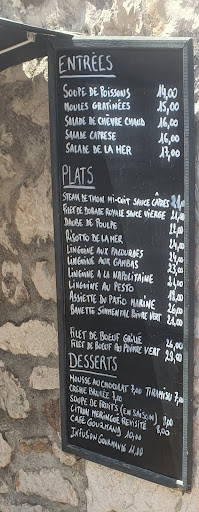 ENTRÉES
SOUPE DE POISSONS 14,00
MOULES GRATINÉES 15,00
SALADE DE CHÈVRE CHAUD 16,00
SALADE CAPRESE 16,00
SALADE DE LA MER 17,00
PLATS
STEAK DE THON MI-CUIT SAUCE
FILET DE DORADE ROYALE SAUCE VIERGE
DAUBE DE POULPE
RISOTTO DE LA MER
LINGUINE AUX PALOURDES
LINGUINE AUX GAMBAS
LINGUINE A LA NAPOLITAINE
LINGUINE AU PESTO
ASSIETTE DU PATIO MARINE
BAVETTE SIMMENTAL POIVRE VERT
FILET DE BOEUF GRILLÉ
FILET DE BOEUF AU POIVRE VERT
DESSERTS
MOUSSE AU CHOCOLAT 7,00 TIRAMISU 7,00
CRÈME BRULÉE 7,00
SOUPE DE FRUITS (EN SAISON) 8,00
CITRON MERINGUÉ REVISITÉ 8,00
CAFÉ GOURMAND 10,00
INFUSION GOURMANDE 11,00